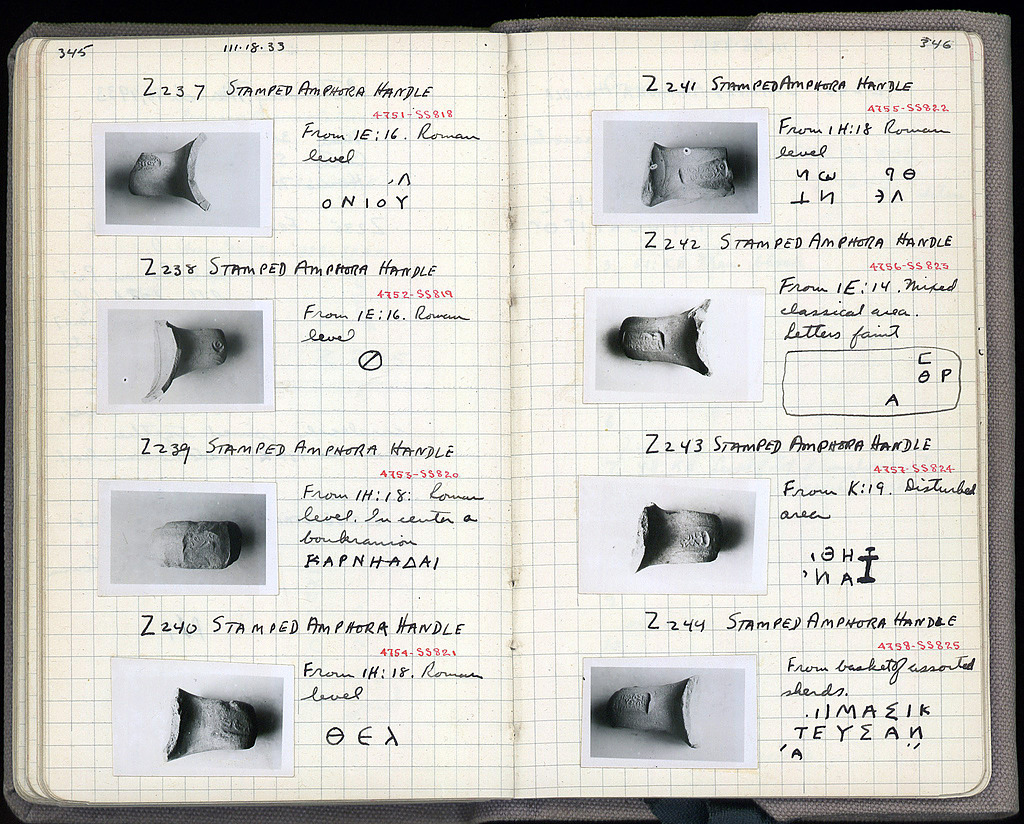 345
III·18·33
Z237 STAMPED AMPHORA HANDLE
4751-SS818
From 1E:16. Roman
level
Λ
ΟΝΙΟΥ
Z238 STAMPED AMPHORA HANDLE
4752-SS819
From 1E:16. Roman
level
Z239 STAMPED AMPHORA HANDLE
4753-SS820
From 1H:18: Roman
level. In center a
boukranion
ΚΑΡΝΗΑΔΑΙ
Z240 STAMPED AMPHORA HANDLE
4754-SS821
From 1H:18. Roman
level
Θ Ε λ
346
Z241 STAMPED AMPHORA HANDLE
4755-SS822
From 1H:18 Roman
level
Z242 STAMPED AMPHORA HANDLE
4756-SS823
From 1E:14. Mixed
classical area.
Letters faint
Θ Ρ
Α
Z243 STAMPED AMPHORA HANDLE
4757-SS824
From K:19. Disturbed
area
Z244 STAMPED AMPHORA HANDLE
4758-SS825
From basket of assorted
sherds.
ΜΑΣΙΚ
Α